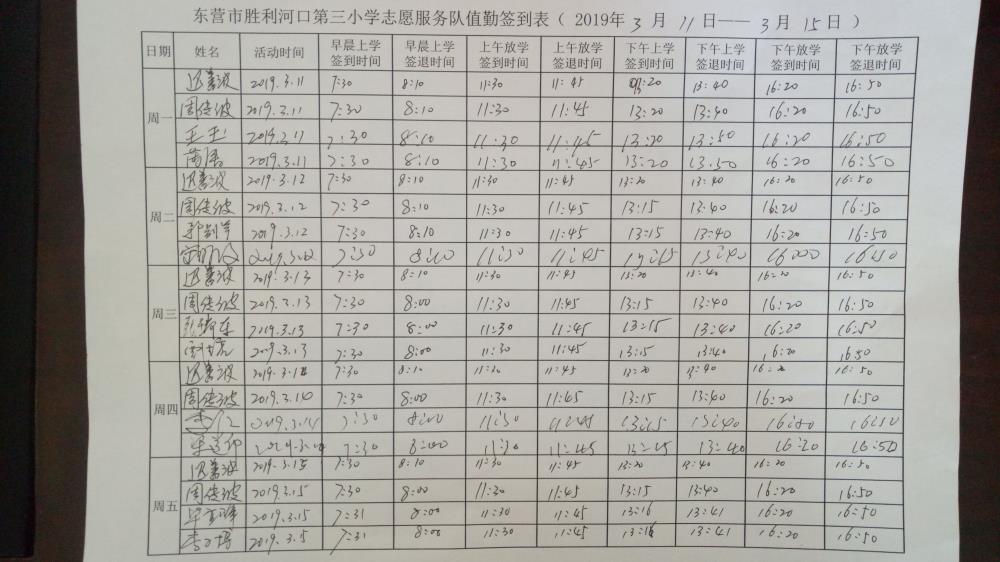 东营市胜利河口第三小学志愿服务队值勤签到表（ 2019年 3 月 11 日—— 3 月 15 日 ）
日期 姓名 活动时间 早晨上学签到时间 早晨上学签退时间 上午放学签到时间 上午放学签退时间 下午上学签到时间 下午上学签退时间 下午放学签到时间 下午放学签退时间
周一 2019.3.11 7:30 8:10 11:30 11:45 13:20 13:40 16:20 16:50
2019.3.11 7:30 8:10 11:30 11:45 13:20 13:40 16:20 16:50
2019.3.11 7:30 8:10 11:30 11:45 13:20 13:50 16:20 16:50
2019.3.11 7:30 8:10 11:30 11:45 13:20 13.50 16:20 16:50
周二 2019.3.12 7:30 8:10 11:30 11:45 13:20 13:40 16:20 16:50
2019.3.12 7:30 8:10 11:30 11:45 13:15 13:40 16:20 16:50
2019.3.12 7:30 8:10 11:30 11:45 13:15 13:40 16:20 16:50
7:30 8:10 11:30 11:45 13:15 13:40
周三 2019.3.13 7:30 8:10 11:30 11:45 13:20 13:40 16:20 16:50
2019.3.13 7:30 8:00 11:30 11:45 13:15 13:40 16:20 16:50
2019.3.13 7:30 8:00 11:30 11:45 13:15 13:40 16:20 16:50
2019.3.13 7:30 8:00 11:30 11:45 13:15 13:40 16:20 16:50
周四 2019.3.14 7:30 8:10 11:30 11:45 13:20 13:40 16:20 16:50
2019.3.14 7:30 8:00 11:30 11:45 13:15 13:40 16:20 16:50
2019.3.14 7:30 8:00 11:30 11:45 13:15 13:40
7:30 8:00 11:30 11:45 13:40 16:20 16:50
周五 2019.3.15 7:30 8:10 11:30 11:45 13:20 13:40 16:20 16:50
2019.3.15 7:30 8:00 11:30 11:45 13:15 13:40 16:20 16:50
2019.3.15 7:31 8:00 11:30 11:45 13:16 13:41 16:20 16:50
2019.3.15 7:31 8:00 11:30 11:45 13:16 13:41 16:20 16:50